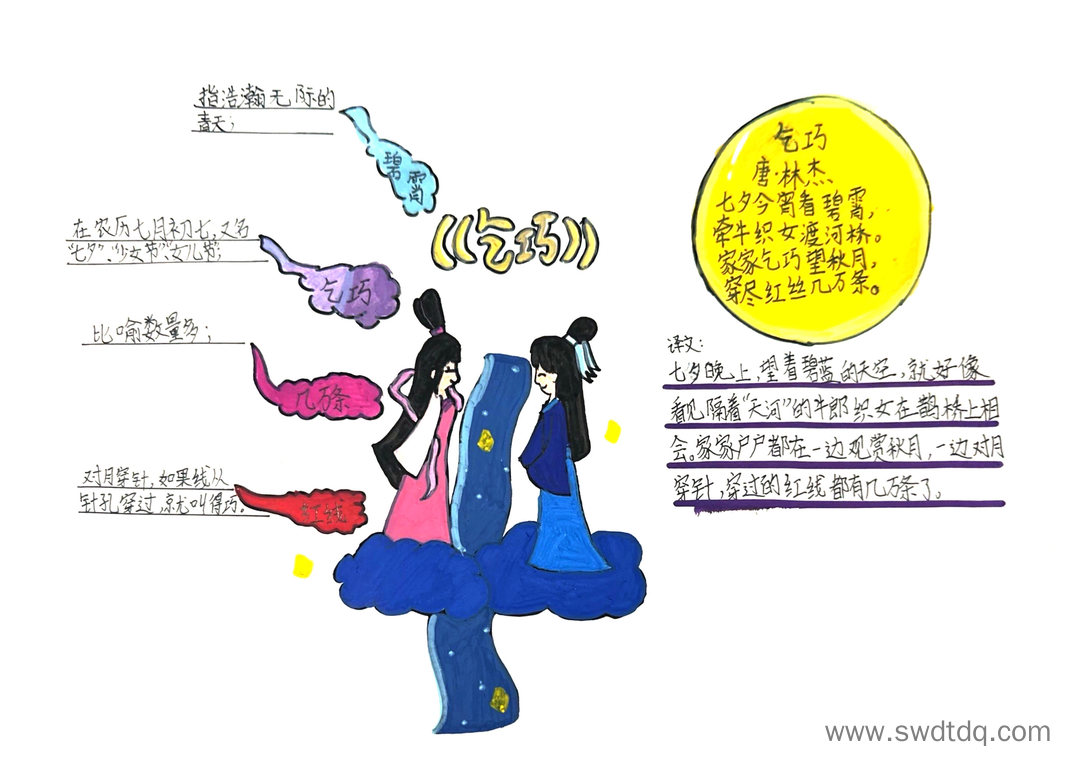 指浩瀚无际的
青天；
碧霄
在农历七月初七，又名
“七夕”、“少女节”、“女儿节”；
乞巧
比喻数量多；
几万条
对月穿针，如果线从
针孔穿过，就叫得巧。
红线
《乞巧》
乞巧
唐·林杰
七夕今宵看碧霄，
牵牛织女渡河桥。
家家乞巧望秋月，
穿尽红丝几万条。
译文：
七夕晚上，望着碧蓝的天空，就好像
看见隔着“天河”的牛郎织女在鹊桥上相
会。家家户户都在一边观赏秋月，一边对月
穿针，穿过的红线都有几万条了。
www.swdtdq.com